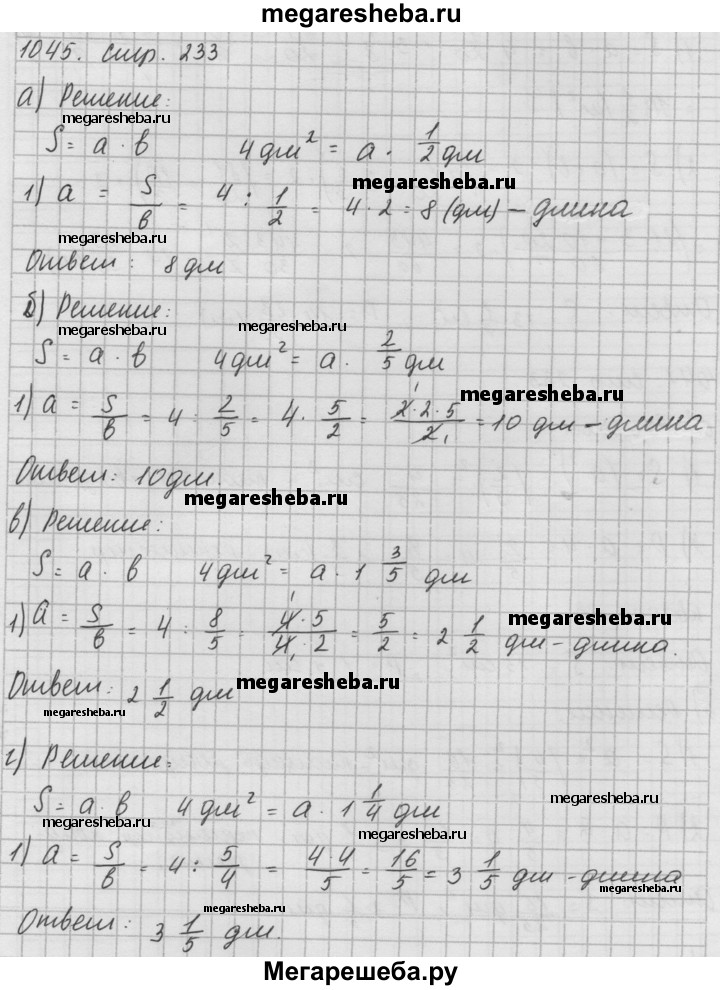 megaresheba.ru
1045. стр. 233
а) Решение:
megaresheba.ru
S = a · b 4 дм² = a · 1/2 дм
megaresheba.ru
1) a = S/b = 4 : 1/2 = 4 · 2 = 8 (дм) – длина
megaresheba.ru
Ответ: 8 дм
б) Решение:
megaresheba.ru megaresheba.ru
S = a · b 4 дм² = a · 2/5 дм
megaresheba.ru
1) a = S/b = 4 : 2/5 = 4 · 5/2 = 2 · 2 · 5/2 = 10 дм – длина
1 1
Ответ: 10 дм.
megaresheba.ru
в) Решение:
S = a · b 4 дм² = a · 1 3/5 дм
megaresheba.ru
1) a = S/b = 4 : 8/5 = 4 · 5/4 · 2 = 5/2 = 2 1/2 дм – длина.
1 1
Ответ: 2 1/2 дм
megaresheba.ru
megaresheba.ru
г) Решение:
S = a · b 4 дм² = a · 1 1/4 дм
megaresheba.ru
megaresheba.ru megaresheba.ru
1) a = S/b = 4 : 5/4 = 4 · 4/5 = 16/5 = 3 1/5 дм – длина
megaresheba.ru
Ответ: 3 1/5 дм.
megaresheba.ru
Мегарешеба.ру